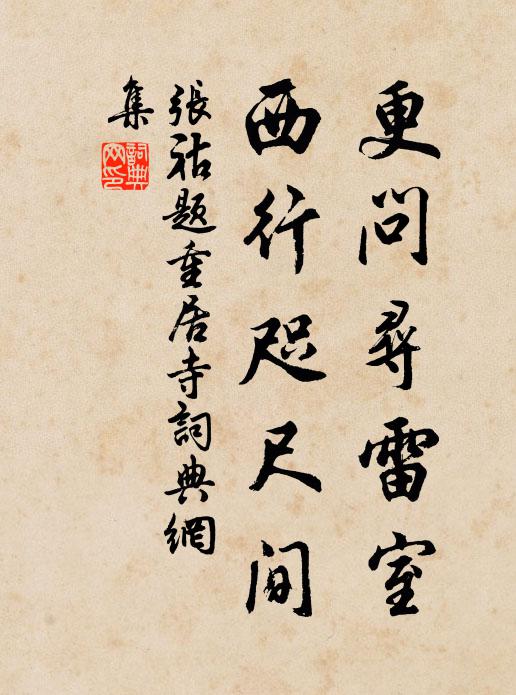 更問尋雷室
西行咫尺間
張祜題重居寺詞典網
集
詞典网印